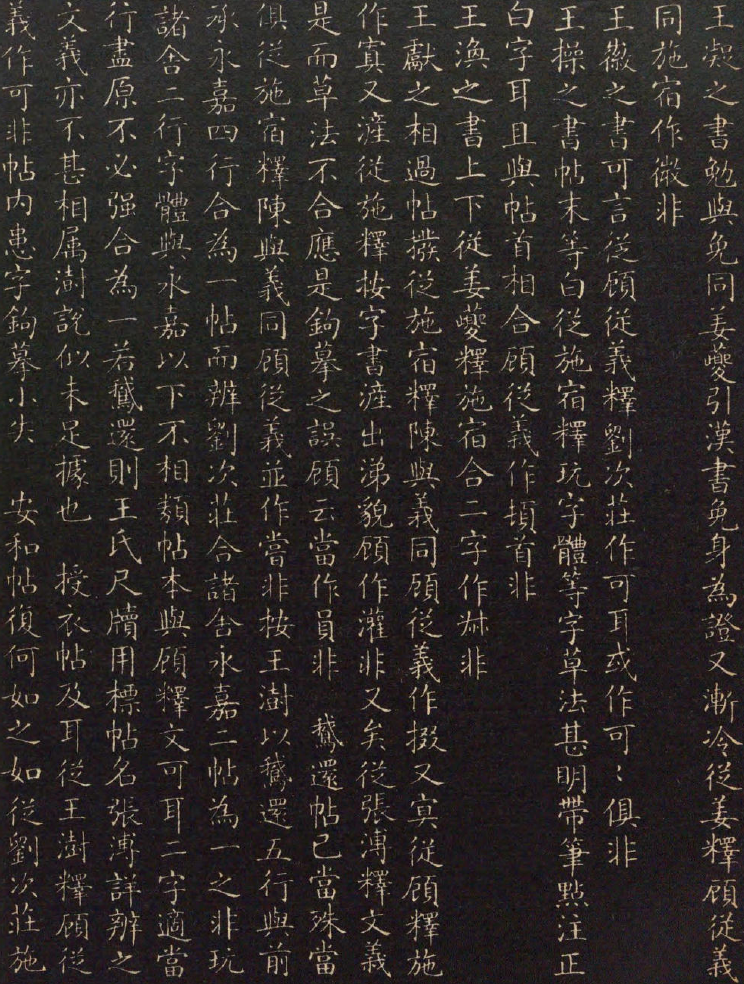 王凝之書勉與免同姜夔引漢書免身為證又漸冷從姜釋顧從義
同施宿作微非
王徽之書可言從顧從義釋劉次莊作可耳或作可〻俱非
王操之書帖末等白從施宿釋玩字體等字草法甚明帶筆點注正
白字耳且與帖首相合顧從義作頓首非
王渙之書上下從姜夔釋施宿合二字作
王獻之相過帖撥從施宿釋陳與義同顧從義作掇又寔從顧釋施
作寘又漄從施釋按字書漄出涕貌顧作灌非又矣從張溥釋文義
是而草法不合應是鉤摹之誤顧云當作員非 鵞還帖已當殊當
俱從施宿釋陳與義同顧從義並作嘗非按王澍以鵞還五行與前
承永嘉四行合為一帖而辨劉次莊合諸舍永嘉二帖為一之非玩
諸舍二行字體與永嘉以下不相類帖本與顧釋文可耳二字適當
行盡原不必强合為一若鵞還則王氏尺牘用標帖名張溥詳辨之
文義亦不甚相属澍說似未足據也 授衣帖及耳從王澍釋顧從
義作可非帖内患字鉤摹小失 安和帖復何如之如從劉次莊施